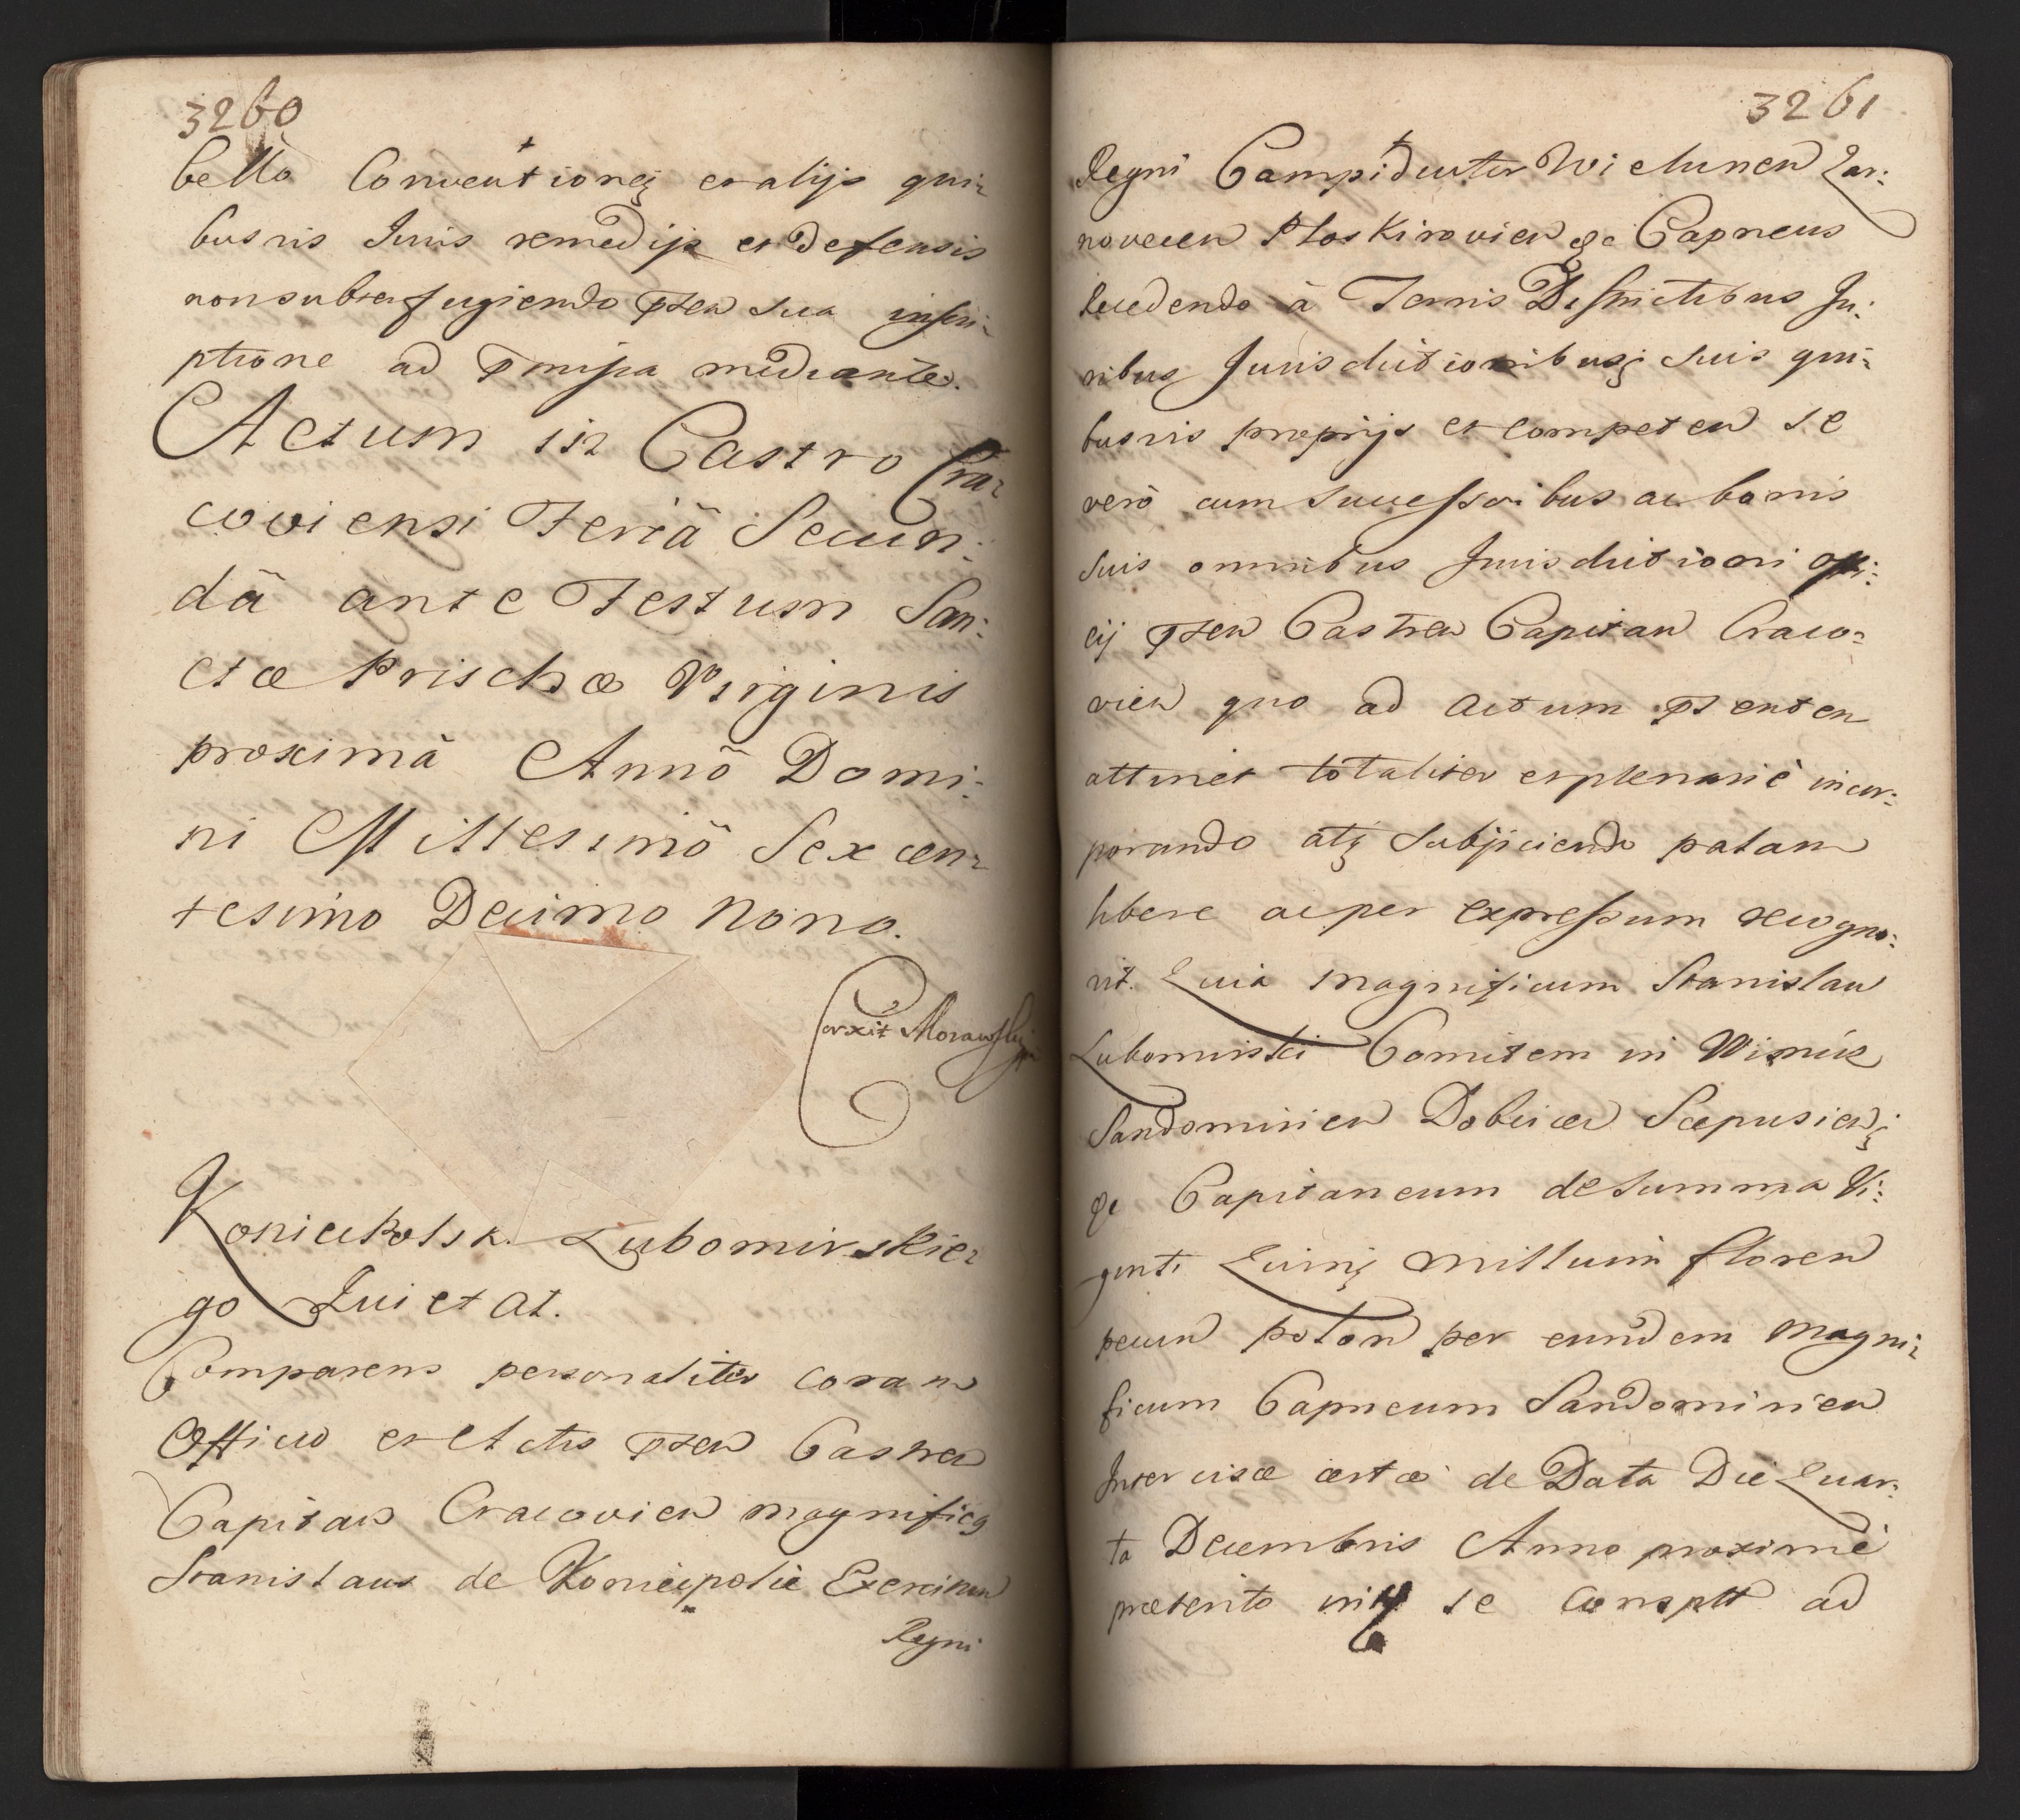 3260
bello Conventioneq et alijs qui-
busvis Juris remedijs et defensis
non subterfugiendo pñen sua inscri-
ptione ad pmissa mediante.
Actum in Castro Cra-
coviensi Feriâ Secun-
dâ ante Festum San-
ctæ Prischæ Virginis
proximâ Annô Domi-
ni Millesimô Sexcen-
tesimo Decimo Nono.
Corxit Morawski
Koniecpolsk. Lubomirskie-
go Quietat.
Comparens personaliter coram
Officio et Actis pñen Castren
Capitan Cracovien magnificus
Stanislaus de Koniecpolie Exercituu
Regni
3261
Regni Campiductor Wielunen Zar-
novecen Ploskirovien &c Capneus
Recedendo à Terris Districtibus Ju-
ribus Jurisdictionibusq suis qui-
busvis proprijs et competen se
verò cum successoribus ac bonis
suis omnibus Jurisdictioni offi-
cij pñen Castren Capitan Craco-
vien quo ad actum pñenten
attinet totaliter et plenariè incor-
porando atq subjiciendo palam
libere ac per expressum recogno-
vit. Quia magnificum Stanislau
Lubomirski Comitem in Wisnicz
Sandomirien Dobcicen Scepusienq
&c Capitaneum de summa Vi-
ginti Quinq millium floren
pecun polon per eundem magni-
ficum Capneum Sandomirien
Intercisæ certæ de Data Die Quar-
ta Decembris Anno proximè
præterito se consptt ad